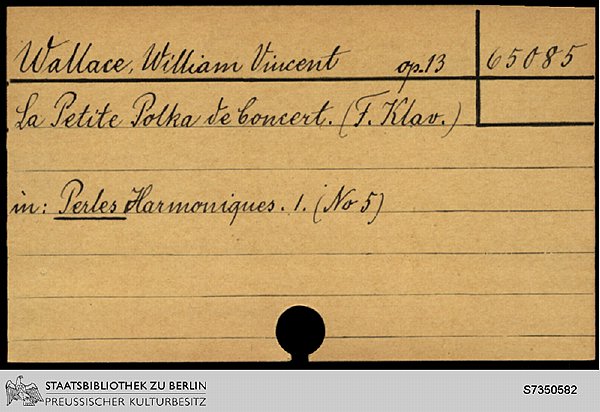 Wallace, William Vincent op. 13 65085
La Petite Polka de Concert. (F. Klav.)
in: Perles Harmoniques. 1. (No 5)
STAATSBIBLIOTHEK ZU BERLIN
PREUSSISCHER KULTURBESITZ
S7350582